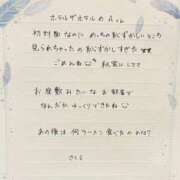 ホテルザホテルの Aくん
初対面なのに めっちゃ恥ずかしいところ
見られちゃったの恥ずかしすぎた
ごめんね 秘密にしてて
お座敷みたいな お部屋で
なんだか ゆっくりできたね
あの後は何ラーメン食べたのかな?
さくら